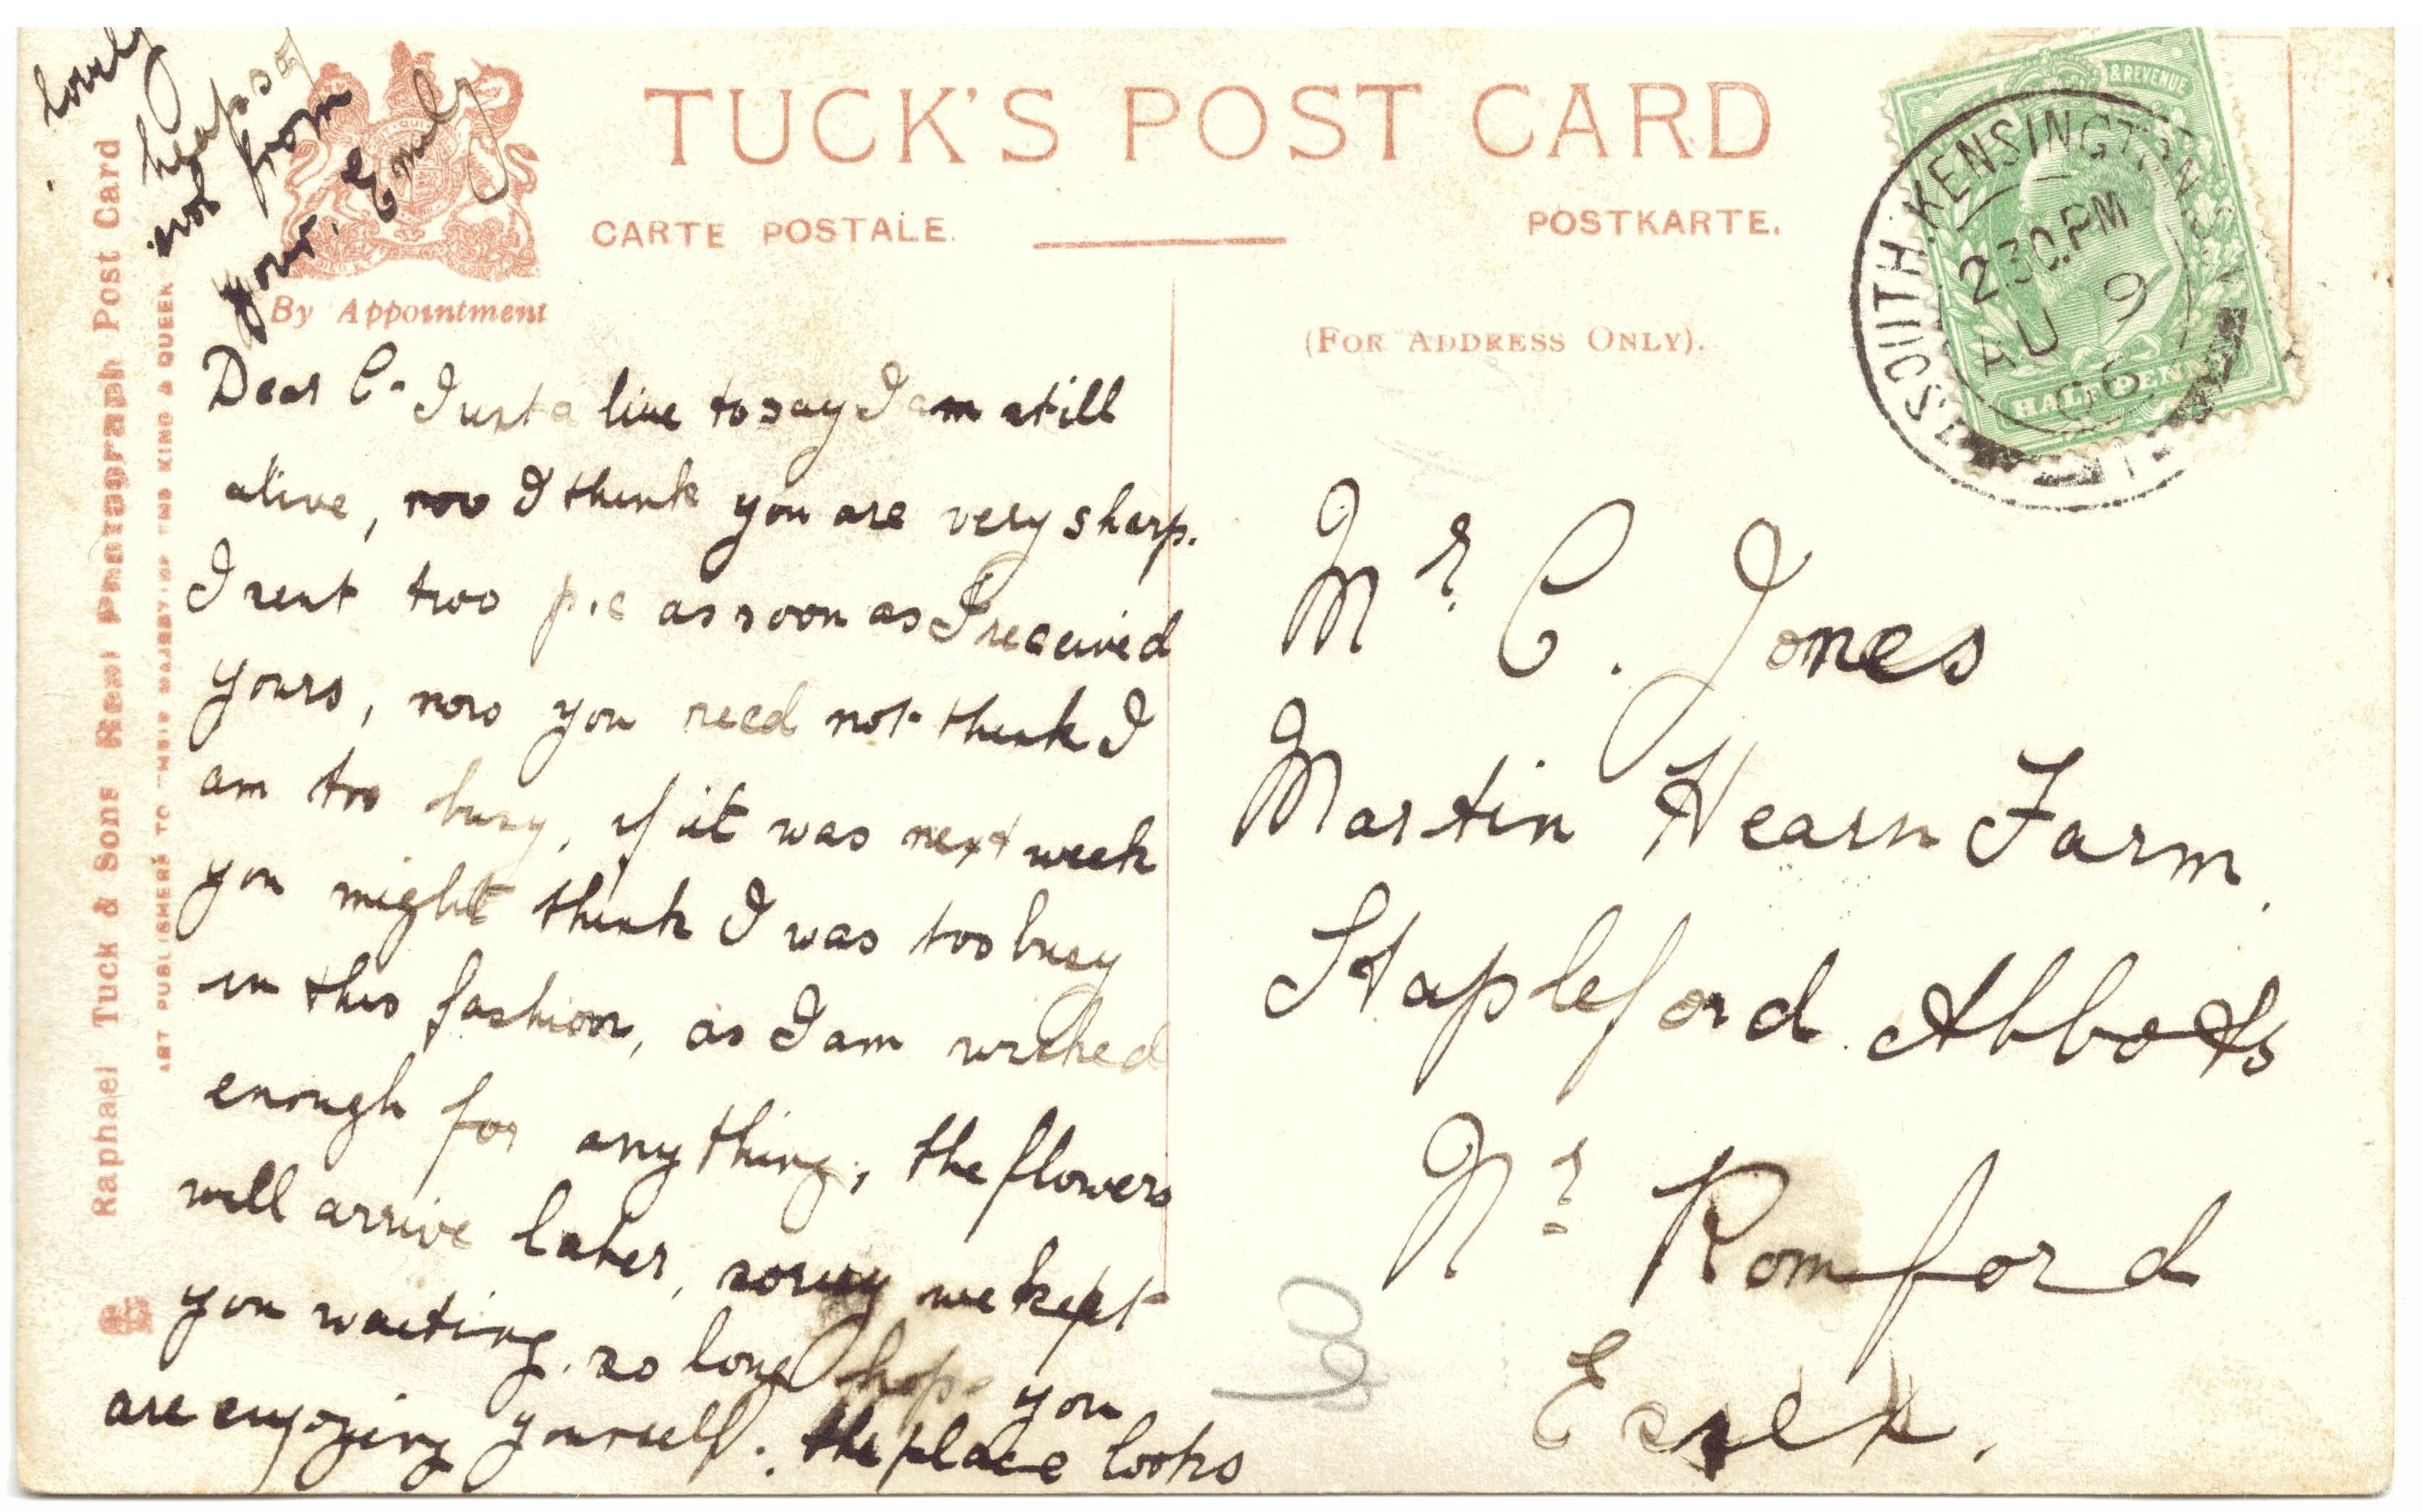 TUCK'S POST CARD
CARTE POSTALE.
POSTKARTE.
By Appointment
(FOR ADDRESS ONLY).
Raphael Tuck & Sons' Real Photograph Post Card
ART PUBLISHERS TO THEIR MAJESTIES THE KING & QUEEN
& REVENUE
HALFPENNY
SOUTH KENSINGTON S.W
2.30.PM
AU 9
06
Dear C- Just a line to say I am still
alive, now I think you are very sharp.
I sent two p.c as soon as I received
yours, now you need not think I
am too busy, if it was next week
you might think I was too busy
in this fashion, as I am wicked
enough for anything, the flowers
will arrive later, sorry we kept
you waiting so long hope you
are enjoying yourself. the place looks
lovely
heaps of
from
your. Emily
Mr C. Jones
Martin Hearn Farm.
Stapleford Abbotts
Nr Romford
Essex.
60